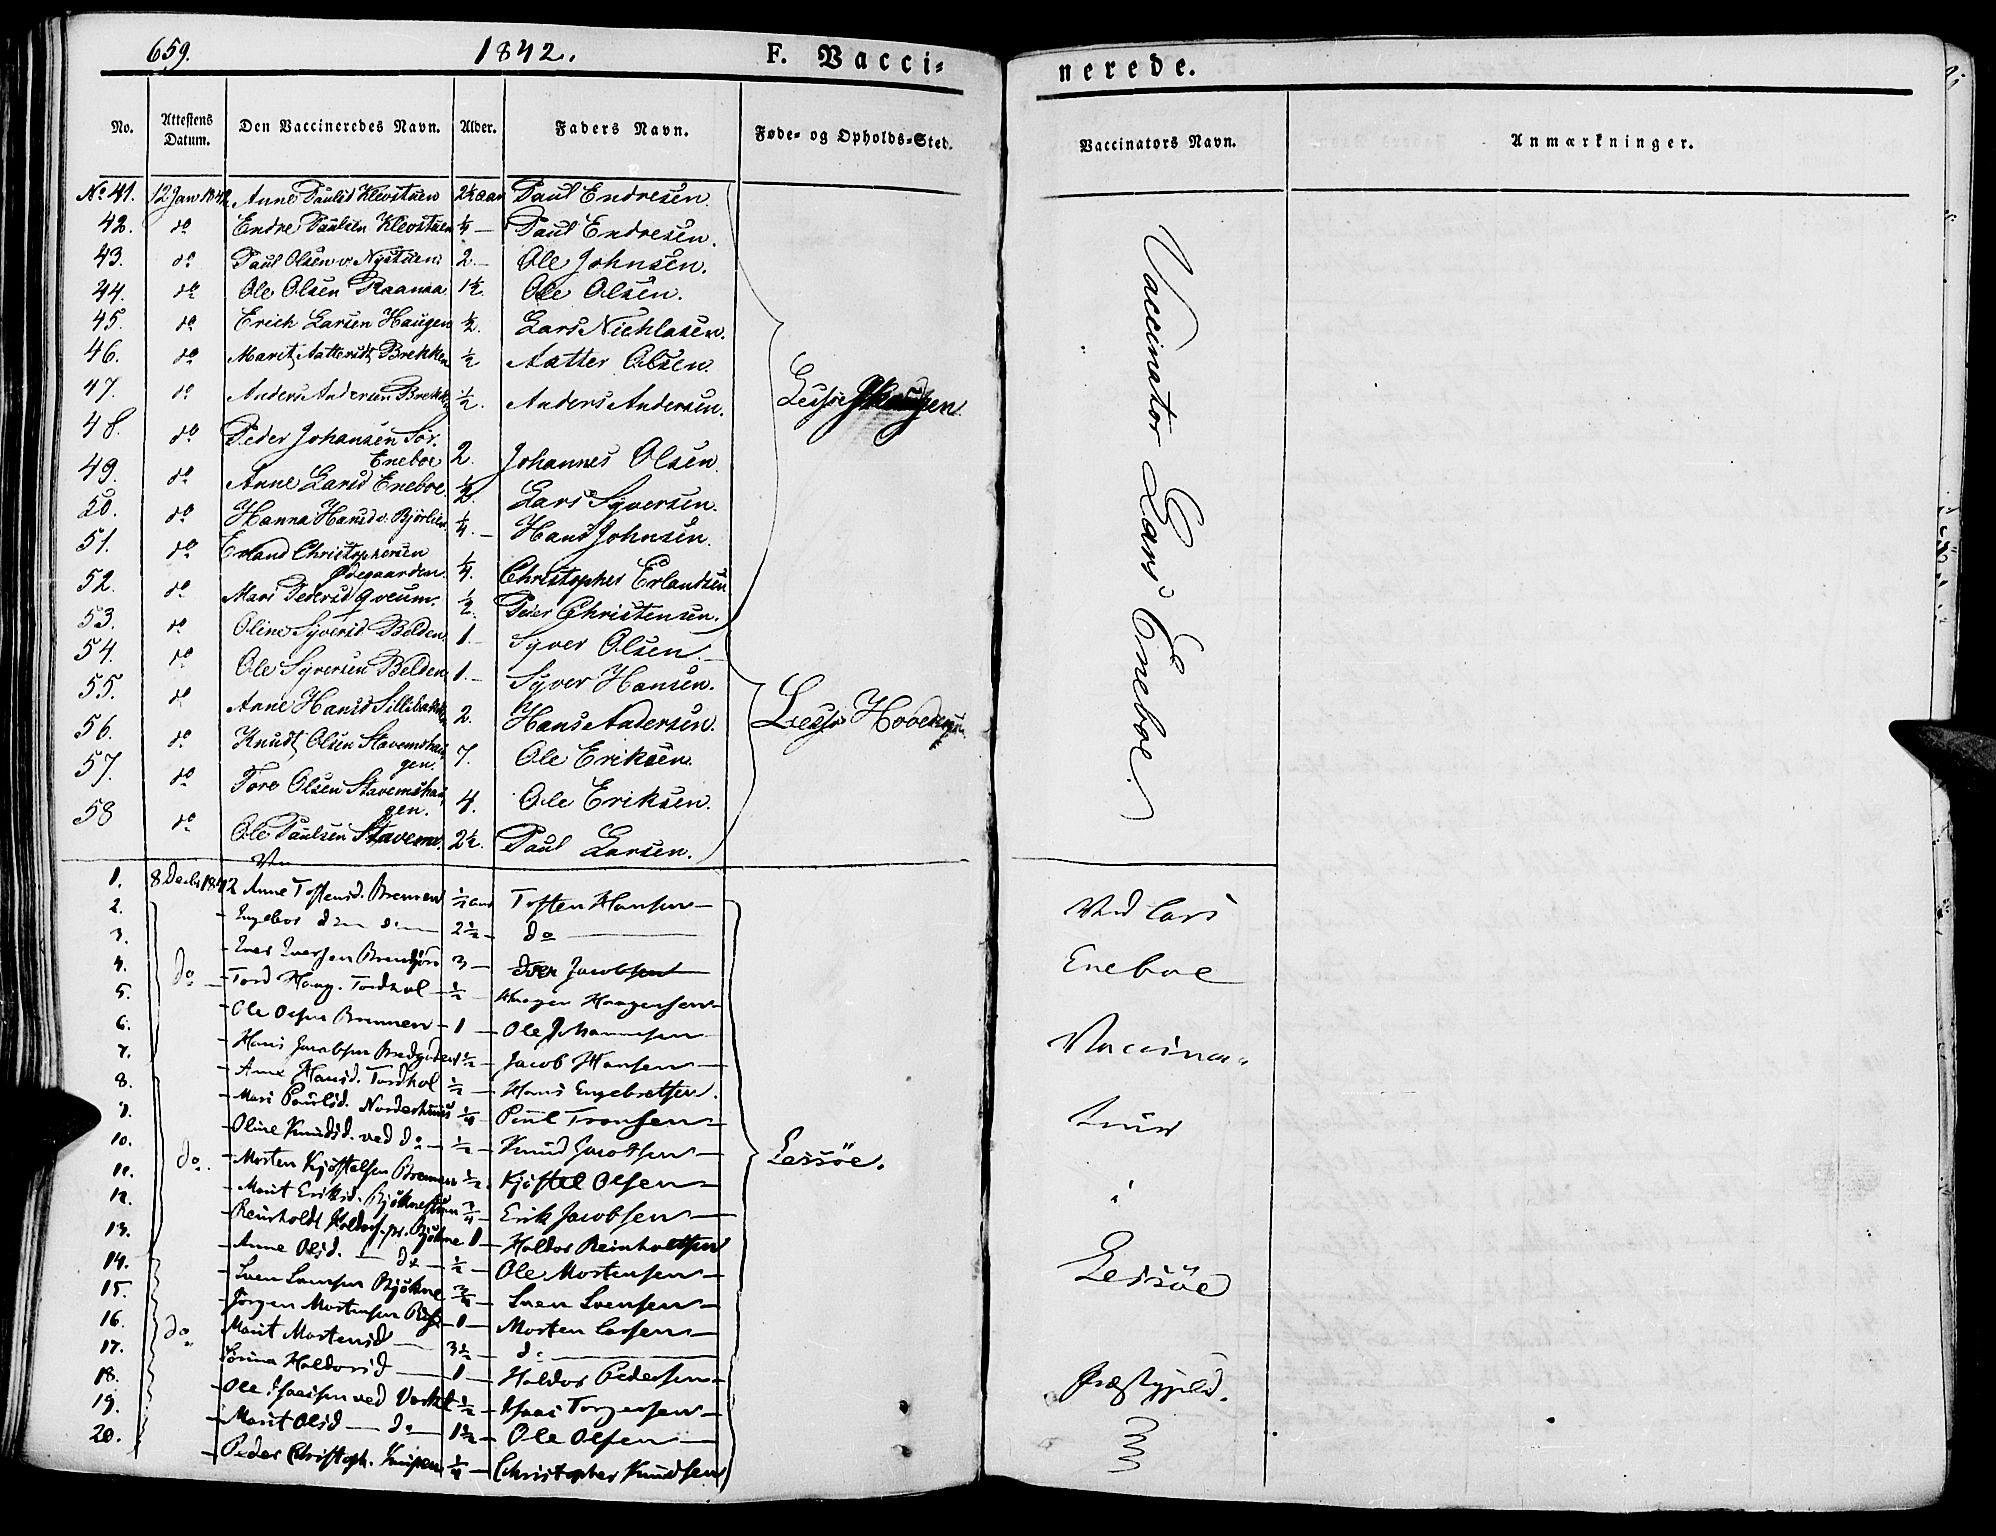 659. 1842. F. Vacci=
nerede.
No. Attestens Datum. Den Vaccineredes Navn. Alder. Faders Navn. Føde- og Opholds-Sted.
Vaccinators Navn. Anmærkninger.
No 41. 12 Jan 1842 Anne Paulsd Klevstuen 2½ aar Paul Endresen.
42. do Endre Paulsen Klevstuen ¼ — Paul Endresen.
43. do Paul Olsen v. Nystuen 2.— Ole Johnsen.
44. do Ole Olsen Raanaa 1½. Ole Olsen.
45. do Erich Larsen Haugen ½. Lars Nichlasen.
46. do Marit Aatterdt Brekken ½ Aatter Olsen.
47. do Anders Andersen Brekk ½. Anders Andersen.
48. do Peder Johansen Sør.
Eneboe 2. Johannes Olsen.
49. do Anne Larsd Eneboe ½. Lars Syversen.
50. do Hanna Hansd v. Bjørlien ¼.— Hans Johnsen.
51. do Erland Christophersen
Ødegaarden. ¼. Christopher Erlandsen
52. do Mari Pedersd Qveum. ½. Peder Christensen.
53. do Oline Syversd Belden 1.— Syver Olsen —
54. do Ole Syversen Belden 1.— Syver Hansen.
55. do Anne Hansd Sillibakken 2. Hans Andersen.
56. do Knudt Olsen Stavemshau
gen. 7. Ole Eriksen.
57. do Tore Olsen Stavemshau
gen. 4. Ole Eriksen.
58 do Ole Paulsen Stavem. 2½. Paul Larsen.
Lessøe Skougen
Lessøe Hoved
Vaccinator Lars Eneboe.
1. 8 Decbr 1842 Anne Tostensd. Brennen ½ aar Tosten Hansen —
2. Engebor 2½ — do —
3. Iver Iversen 3 — Iver Jacobsen
4. do Tord Haag. Tordhol — ½ — Haagen Haagensen —
5. Ole Olsen Brennen — 1 — Ole Johannesen
6. Hans Jacobsen ½ — Jacob Hansen —
7. Anne Hansd. Tordhol ½ — Hans Engebretsen.
8. Mari Paulsd. Nordenhuus ¼ Paul Tronsen —
9. Oline Knudsd. ved do — ½ — Knud Jacobsen —
10. do. Morten Kjøstelsen Brennen ½ Kjøstel Olsen —
11. Marit Eriksd. Bjøknestuen ¾ — Erik Jacobsen —
12. Reinholdt Haldors. Bjøkne 1 — Haldor Reinholtsen
13. Anne Olsd. — do — ½ — Ole Mortensen —
14. Sven Svensen Bjøkne ¾ — Sven Svensen —
15. Jørgen Mortensen — 1 — Morten Larsen —
16. do. Marit Mortensd — 3½ — do —
17. Sørina Haldorsd — 1 — Haldor Pedersen —
18. Ole Isaacsen ved Verket — ½ — Isaac Torgersen —
19. Marit Olsd — do — 1½ — Ole Olsen —
20. Peder Christoph. ¼ — Christopher Knudsen
Lessøe.
Ved Lars
Eneboe
Vaccina-
i
Lessøe
Præstgjeld.